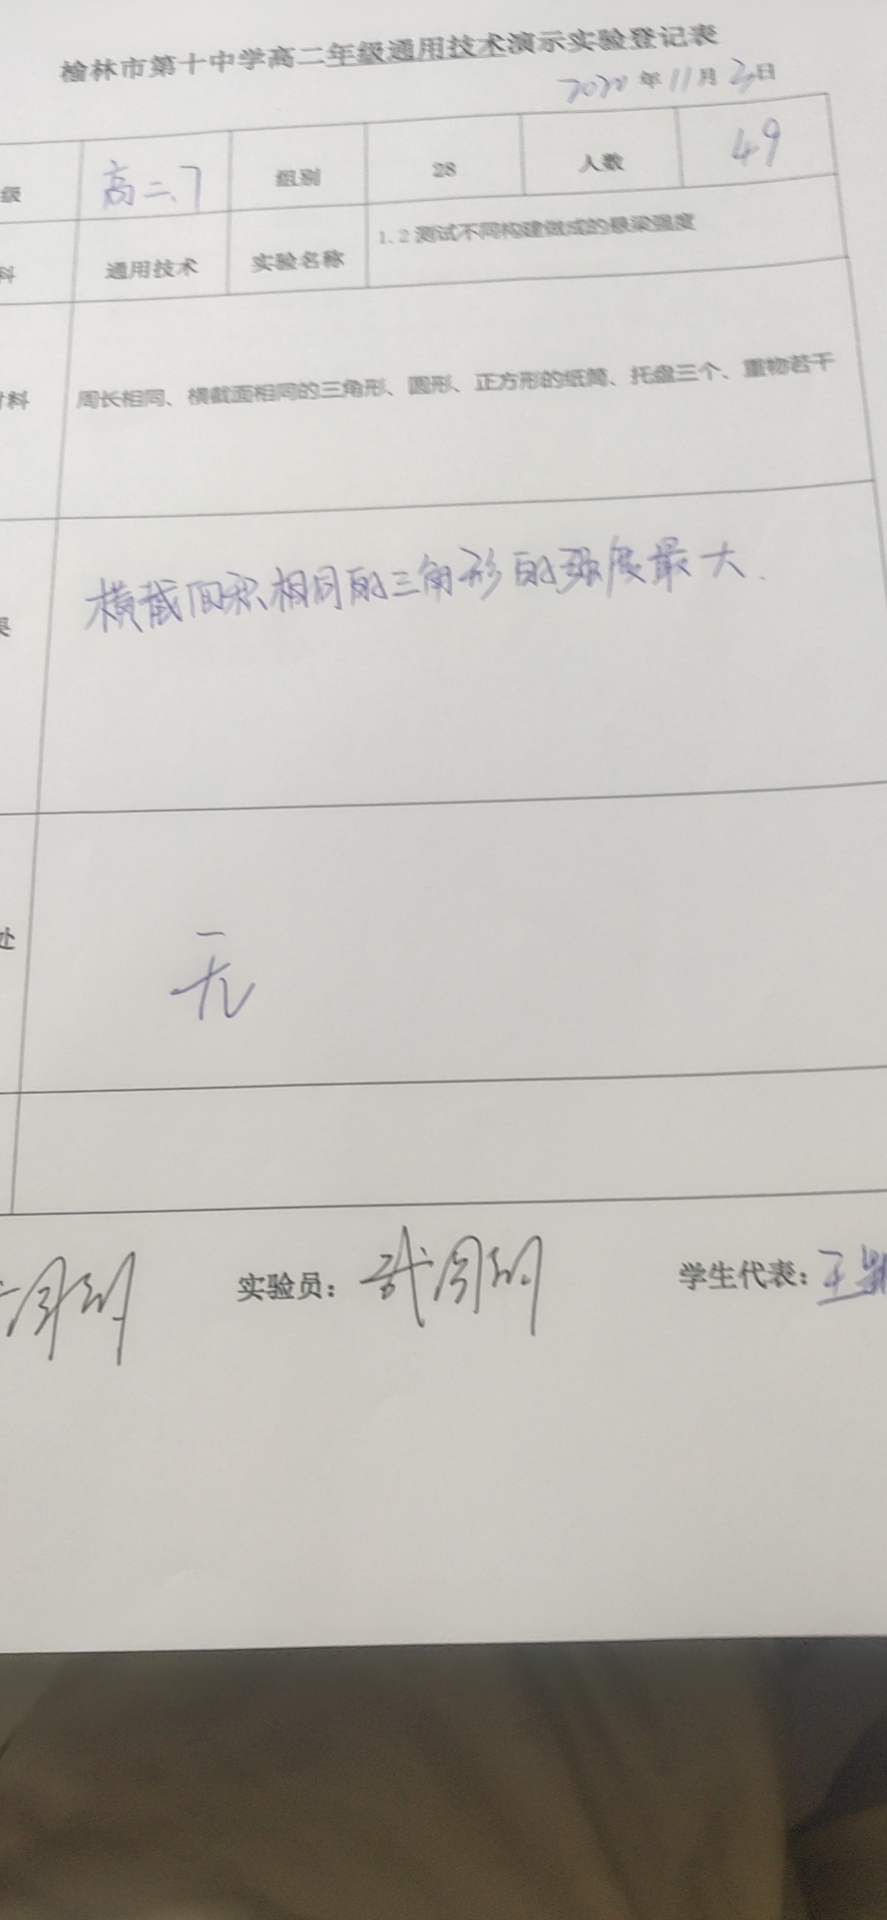 榆林市第十中学高二年级通用技术演示实验登记表
2020年11月3日
级 高二.7 组别 28 人数 49
科 通用技术 实验名称 1.2测试不同构建做成的悬梁强度
材料 周长相同、横截面相同的三角形、圆形、正方形的纸筒、托盘三个、重物若干
果 横截面积相同的三角形的强度最大.
处 无
实验员: 学生代表:王